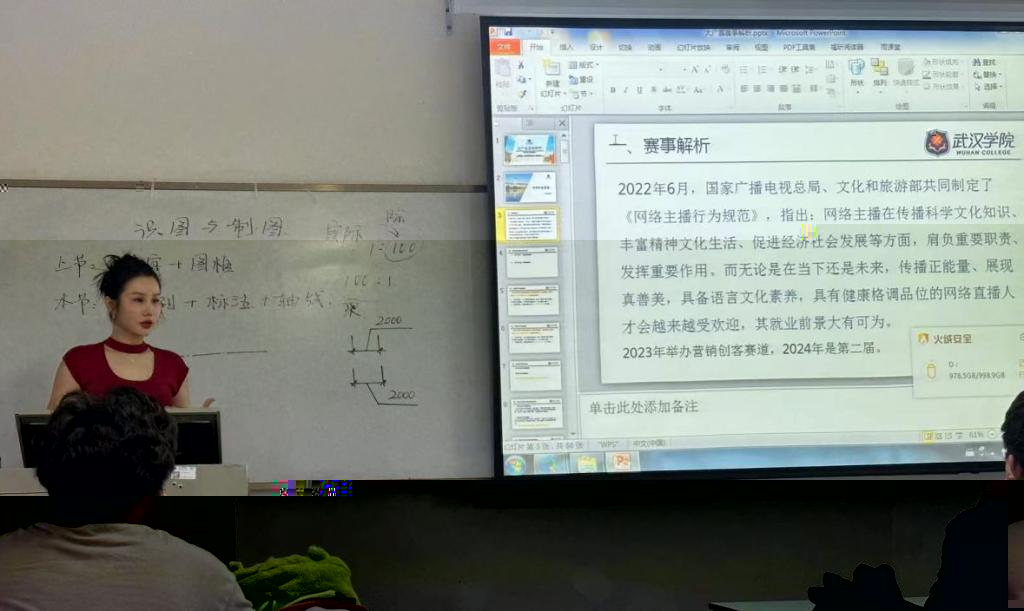 识图与制图
实际
际
1:100
100:1
上节:
+图框
本节:
+标注+轴线
2000
2000
大广赛赛事解析.pptx - Microsoft PowerPoint
文件 开始 插入 设计 切换 动画 幻灯片放映 审阅 视图 PDF工具集 福昕阅读器 雨课堂
粘贴
新建
幻灯片
版式
重设
节
形状 排列 快速样式
形状填充
形状轮廓
形状效果
查找
替换
选择
剪贴板 幻灯片 字体 段落 绘图 编辑
1
2
3
4
5
6
7
8
二、赛事解析
武汉学院
WUHAN COLLEGE
2022年6月，国家广播电视总局、文化和旅游部共同制定了
《网络主播行为规范》，指出：网络主播在传播科学文化知识、
丰富精神文化生活、促进经济社会发展等方面，肩负重要职责、
发挥重要作用。而无论是在当下还是未来，传播正能量、展现
真善美，具备语言文化素养，具有健康格调品位的网络直播人
才会越来越受欢迎，其就业前景大有可为。
2023年举办营销创客赛道，2024年是第二届。
火绒安全
D:
978.5GB/998.9GB
单击此处添加备注
幻灯片 第 3 张，共 64 张 "WPS" 中文(中国)
61%